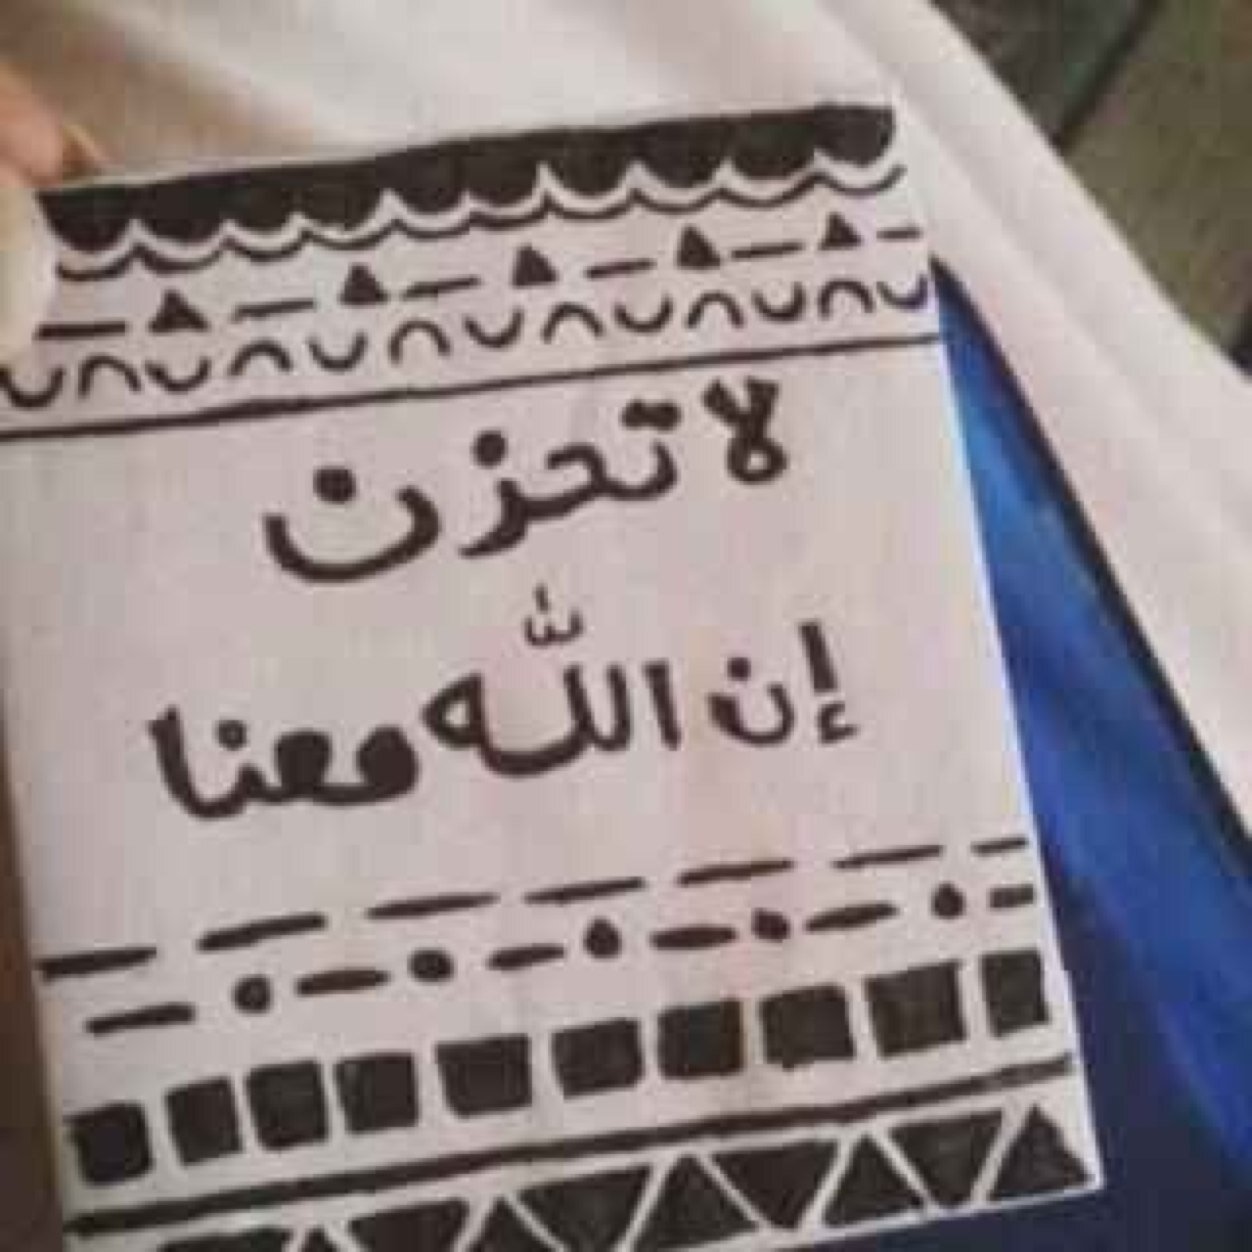 لا تحزن
إن الله معنا